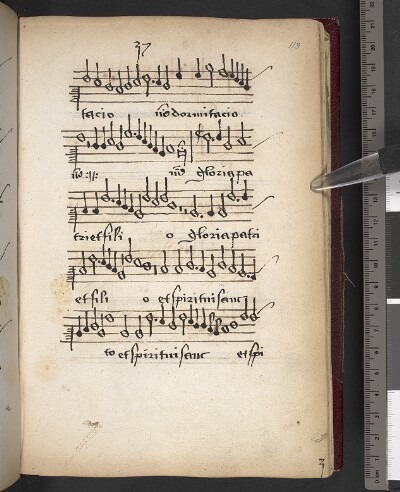 37
119
tacio nō dormitacio
nō :||: nō gloria pa
tri et fili o gloria patri
et fili o et spiritui sanc
to et spiritui sanc et spi
3